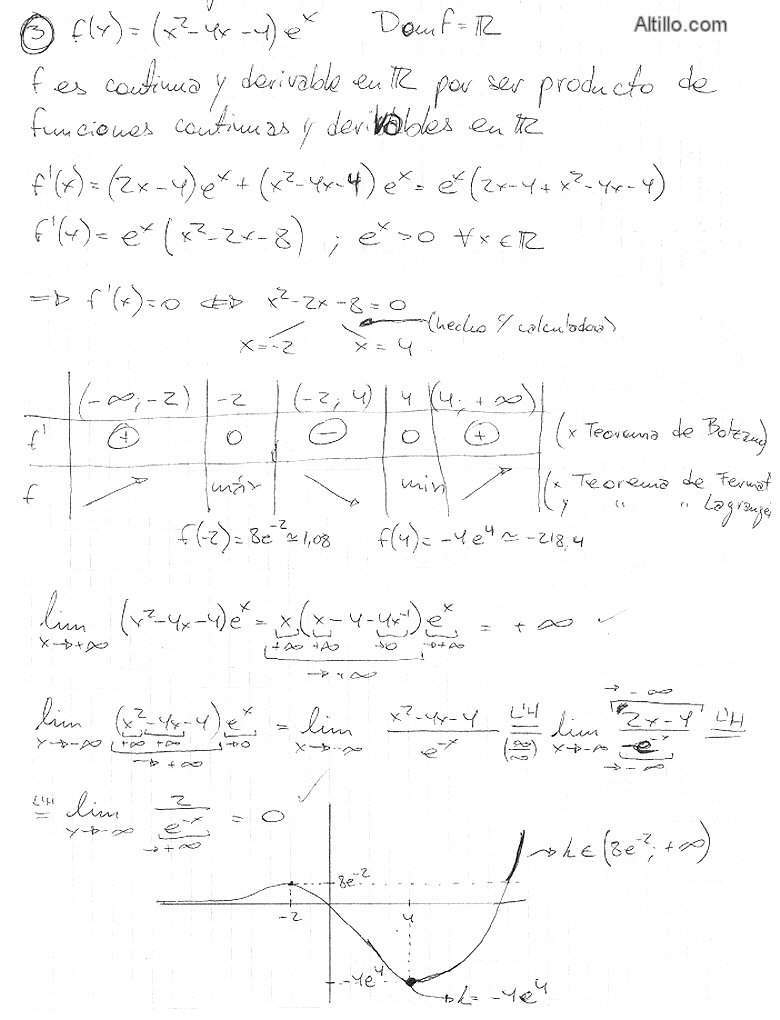 Altillo.com
③ f(x) = (x²-4x-4)eˣ Dom f = ℝ
f es continua y derivable en ℝ por ser producto de
funciones continuas y derivables en ℝ
f'(x) = (2x-4)eˣ + (x²-4x-4)eˣ = eˣ(2x-4+x²-4x-4)
f'(x) = eˣ(x²-2x-8) ; eˣ>0 ∀x∈ℝ
⇒ f'(x)=0 ⇔ x²-2x-8=0
(hecho c/ calculadora)
x=-2 x=4
(-∞;-2) -2 (-2;4) 4 (4;+∞)
f' + 0 - 0 + (x Teorema de Bolzano
f ↗ máx ↘ min ↗ (x Teorema de Fermat
y " " Lagrange
f(-2)=8e⁻²≃1,08 f(4)=-4e⁴≃-218,4
lim x→+∞ (x²-4x-4)eˣ = x(x-4-4x⁻¹)eˣ = +∞ ✓
→+∞ →+∞ →0 →+∞
→+∞
→-∞
lim x→-∞ (x²-4x-4)eˣ = lim x→-∞ (x²-4x-4)/e⁻ˣ L'H = (∞/∞) lim x→-∞ (2x-4)/(-e⁻ˣ) L'H =
+∞ +∞ →0 →-∞
→+∞
L'H = lim x→-∞ 2/e⁻ˣ = 0 ✓
→+∞
→ k∈(8e⁻²;+∞)
8e⁻²
-2 4
-4e⁴
→ k=-4e⁴